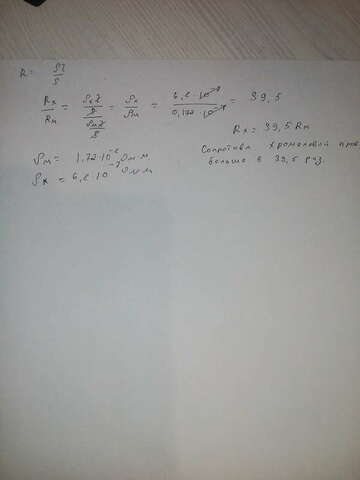 R = ρl/S
Rх/Rм = (ρхl/S)/(ρмl/S) = ρх/ρм = 6,8·10⁻⁷/0,172·10⁻⁷ = 39,5
Rх = 39,5 Rм
ρм = 1,72·10⁻⁸ Ом·м
ρх = 6,8·10⁻⁷ Ом·м
Сопротивл. хромаловой пров.
больше в 39,5 раз.